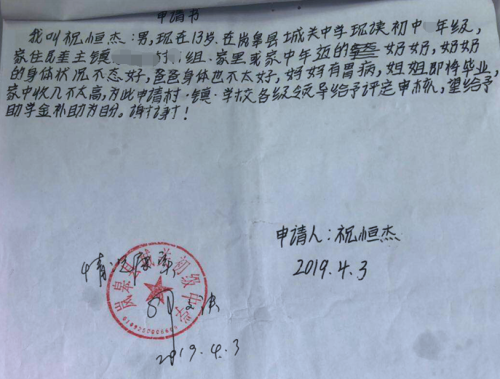 申请书
我叫祝恒杰:男,现在13岁.在岚皋县城关中学现读初中 年级,
家住民主镇 村 组.家里 家中年迈的 奶奶,奶奶
的身体状况不怎好,爸爸身体也不太好,妈妈有胃病,姐姐即将毕业,
家中收入不太高,为此申请村·镇·学校各级领导给予评定审核,望给予
助学金补助为盼。谢谢!
申请人:祝恒杰
2019.4.3
情况属实
岚皋县城关初级中学
2019.4.3